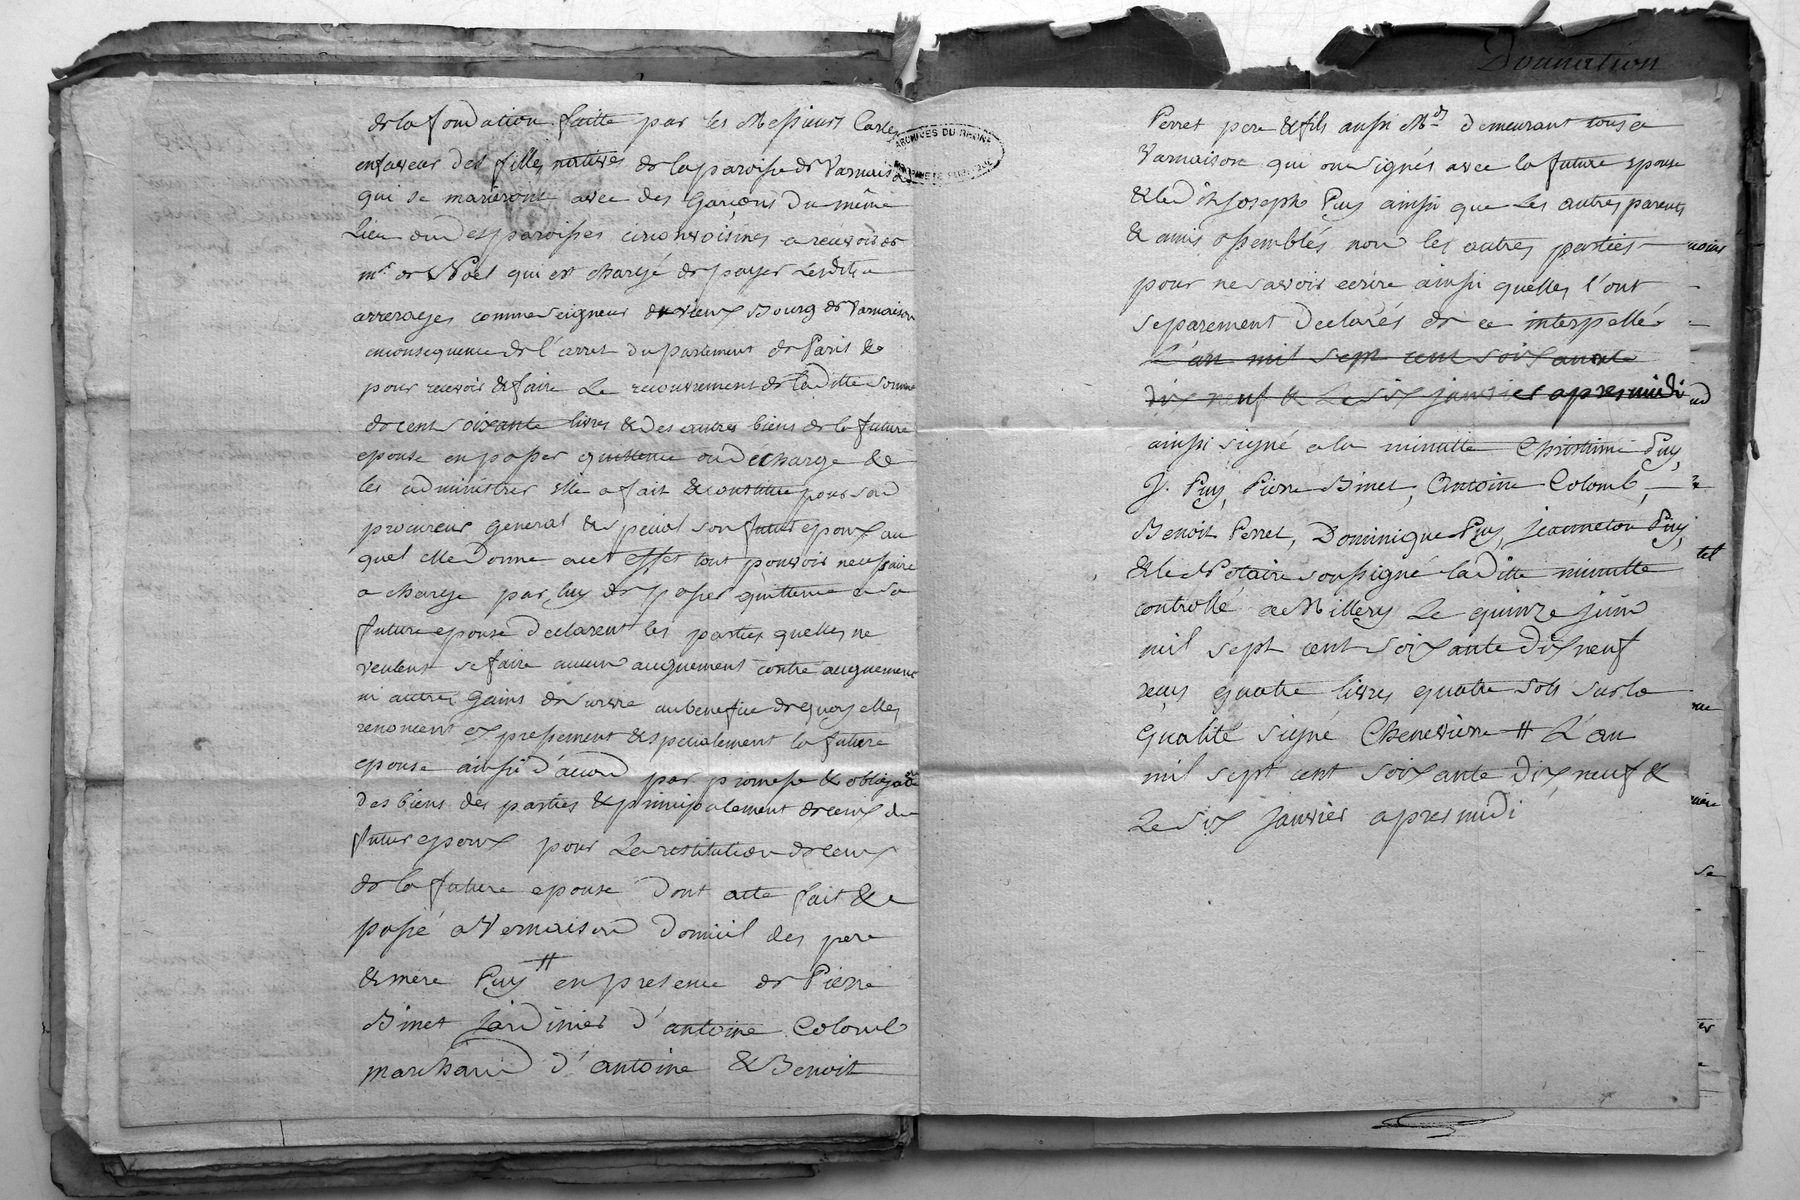 de la fondation faitte par les Messieurs Carle
en faveur des filles natives de la paroisse de Vernaison
qui se marieront avec des Garçons du même
Lieu ou des paroisses circonvoisines a recevoir de
mr. de Noël qui est chargé de payer lesdits
arrerages comme seigneur du vieux Bourg de Vernaison
en consequence de l'arret du parlement de Paris &
pour recevoir & faire Le recouvrement de laditte somme
de cent soixante livres & des autres biens de la future
epouse en passer quittence ou décharge &
les administrer elle a fait & constitue pour son
procureur general & special son futur epoux au
quel elle donne a cet effet tout pouvoir necessaire
a charge par luy de passer quittence a sa
future epouse declarent les parties quelles ne
veulent se faire aucun auguement contre auguement
ni autres gains de survie au benefice de quoy elles
renoncent expressement & specialement la future
epouse ainsi d'accord par promesse & obligaon
des biens des parties & principalement de ceux du
futur epoux pour La restitution de ceux
de la future epouse dont acte fait &
passé a Vernaison Domicil des pere
& mere Puy # en presence de Pierre
Binet Jardinier d'antoine Colomb
marchand d'antoine & Benoit
ARCHIVES DU RHONE
Donnation
Perret pere & fils aussi Mds demeurant tous a
Varnaison qui ont signés avec la future epouse
& ledit Joseph Puy ainsi que les autres parents
& amis assemblés non les autres parties
pour ne savoir ecrire ainsi quelles l'ont
separement Declarés de ce interpellés
L'an mil sept cent soixante
dix neuf & Le six janvier apres midi
ainsi signé a la minutte Christine Puy,
J. Puy, Pierre Binet, Antoine Colomb,
Benoit Perret, Dominique Puy, Jeanneton Puy,
& le Notaire soussigné laditte minutte
controllé a Millery Le quinze juin
mil sept cent soixante dix neuf
reçus quatre livres quatre sols sur la
qualité signé Chenevière # L'an
mil sept cent soixante dix neuf &
Le six Janvier apres midi